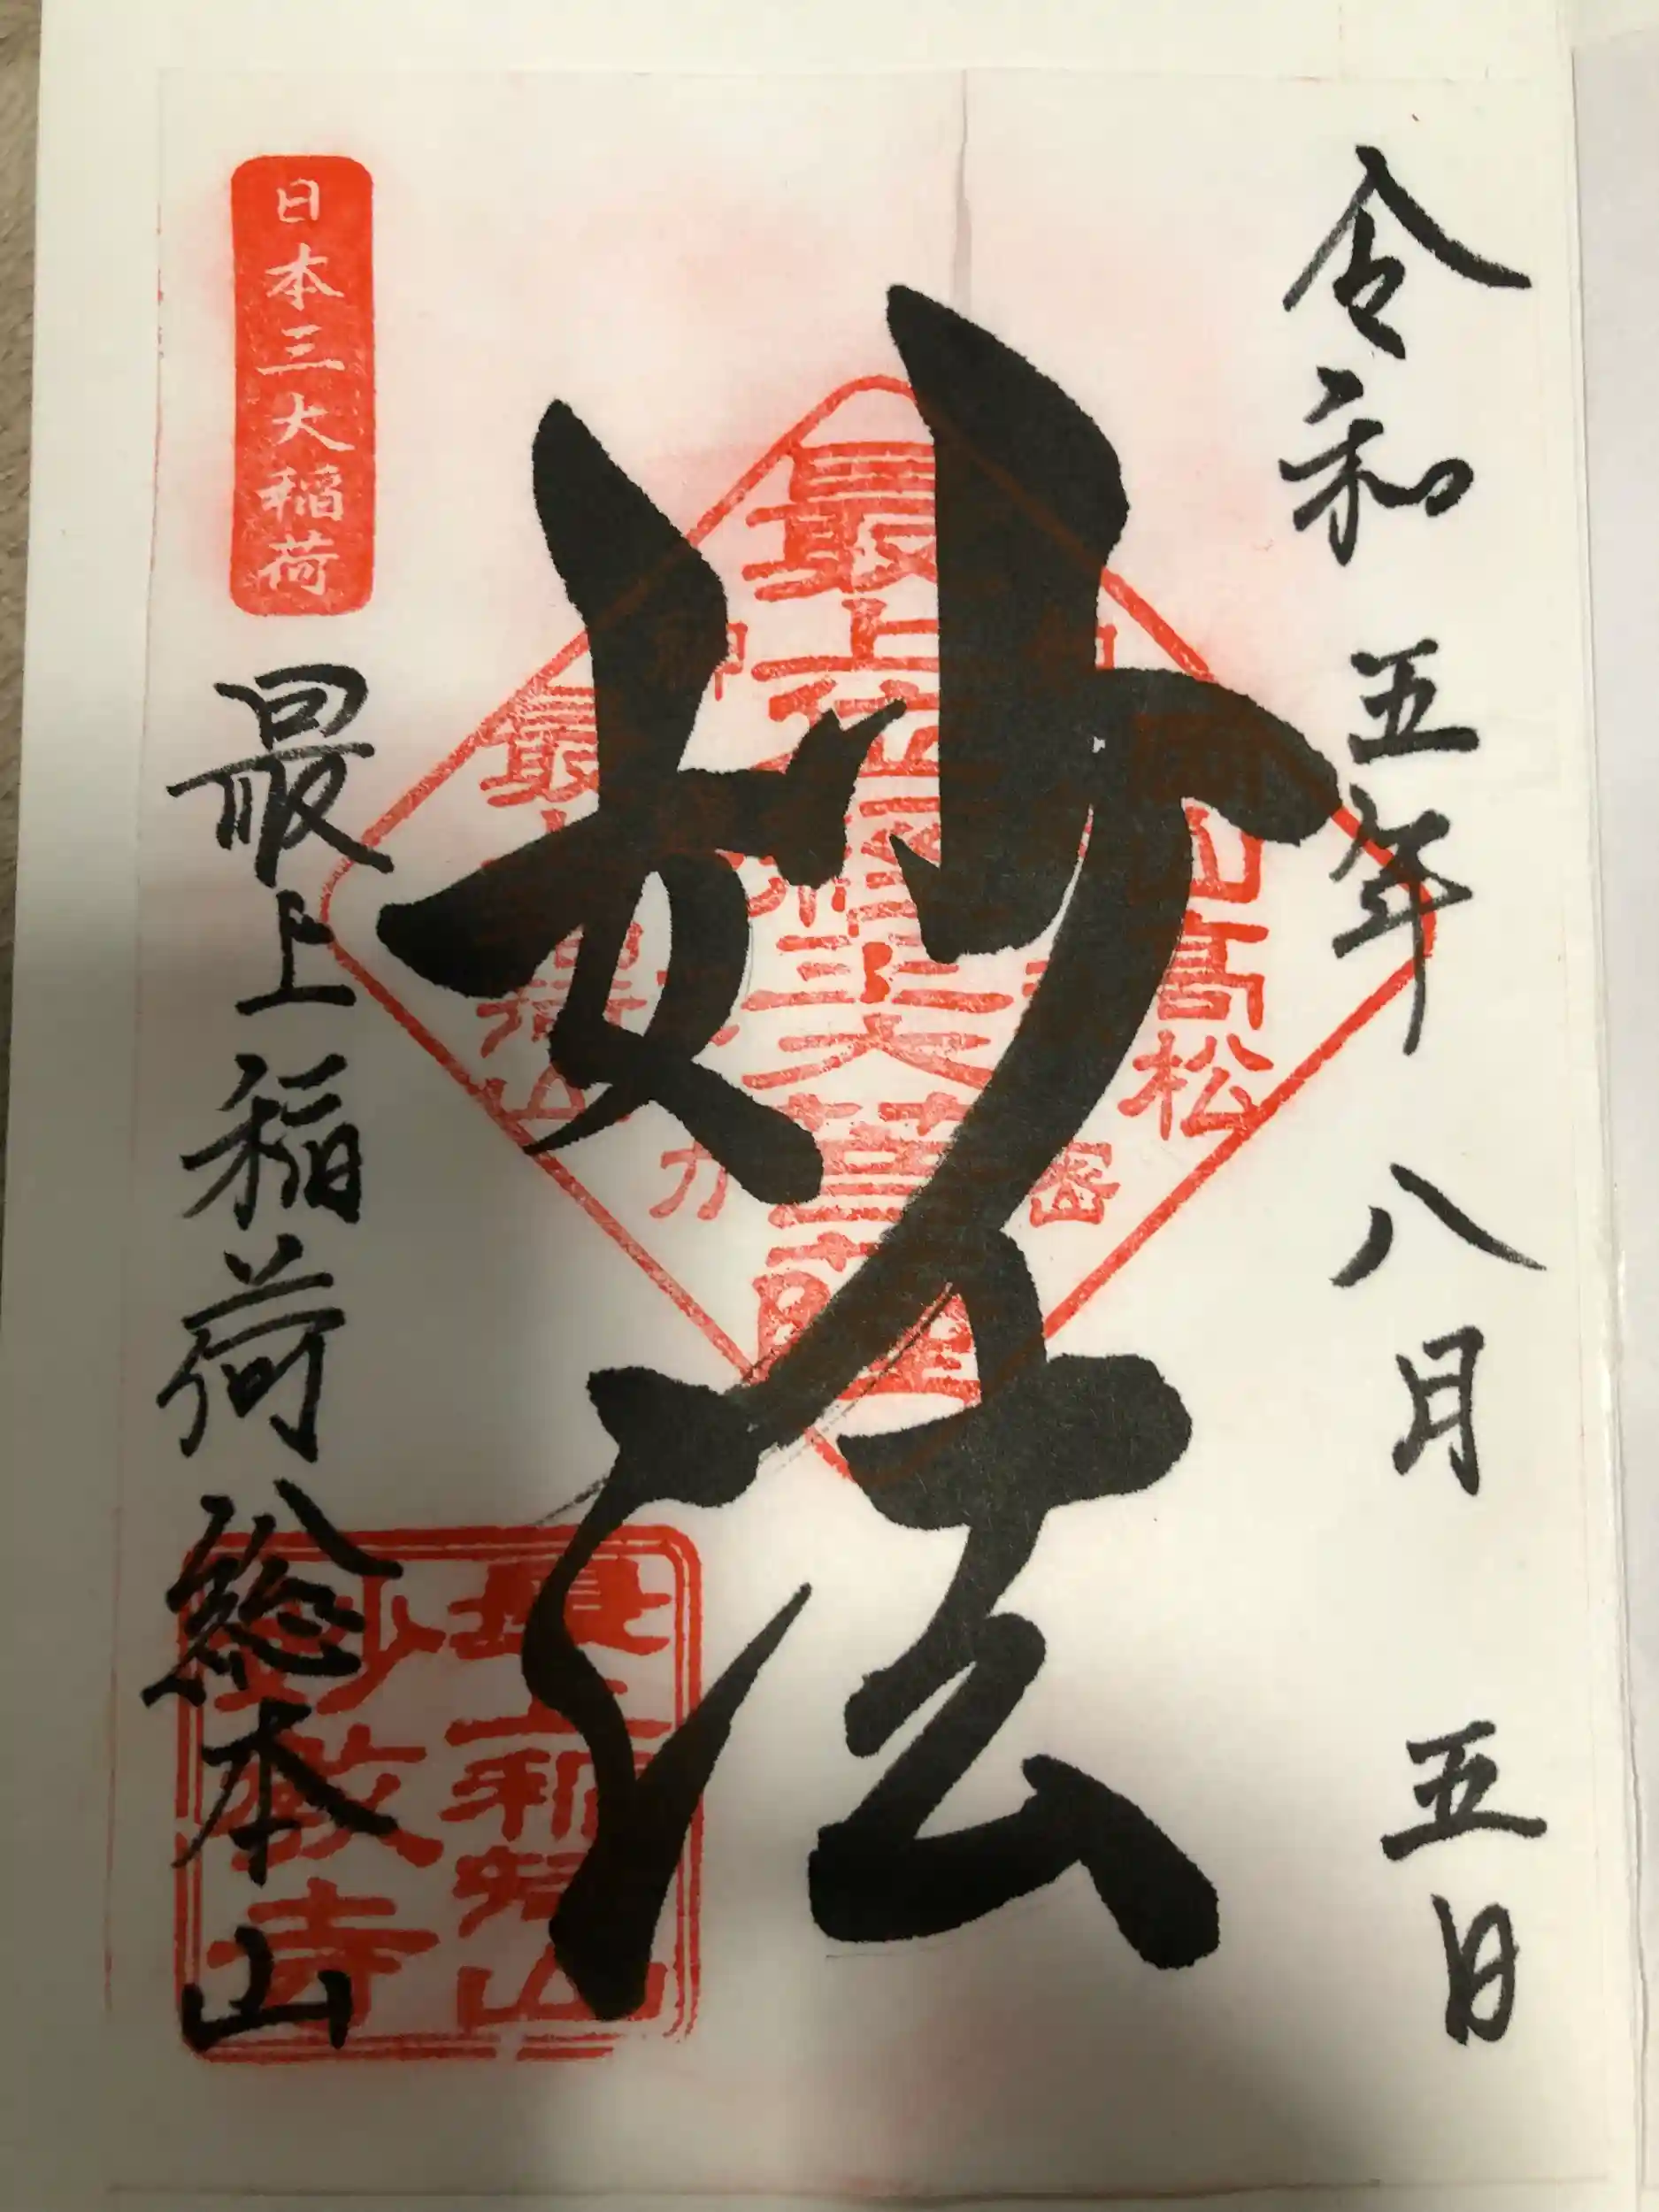 令和五年八月五日
妙法
最上位経王大菩薩
高松
最上稲荷山
日本三大稲荷
最上稲荷総本山
最上稲荷山
妙教寺